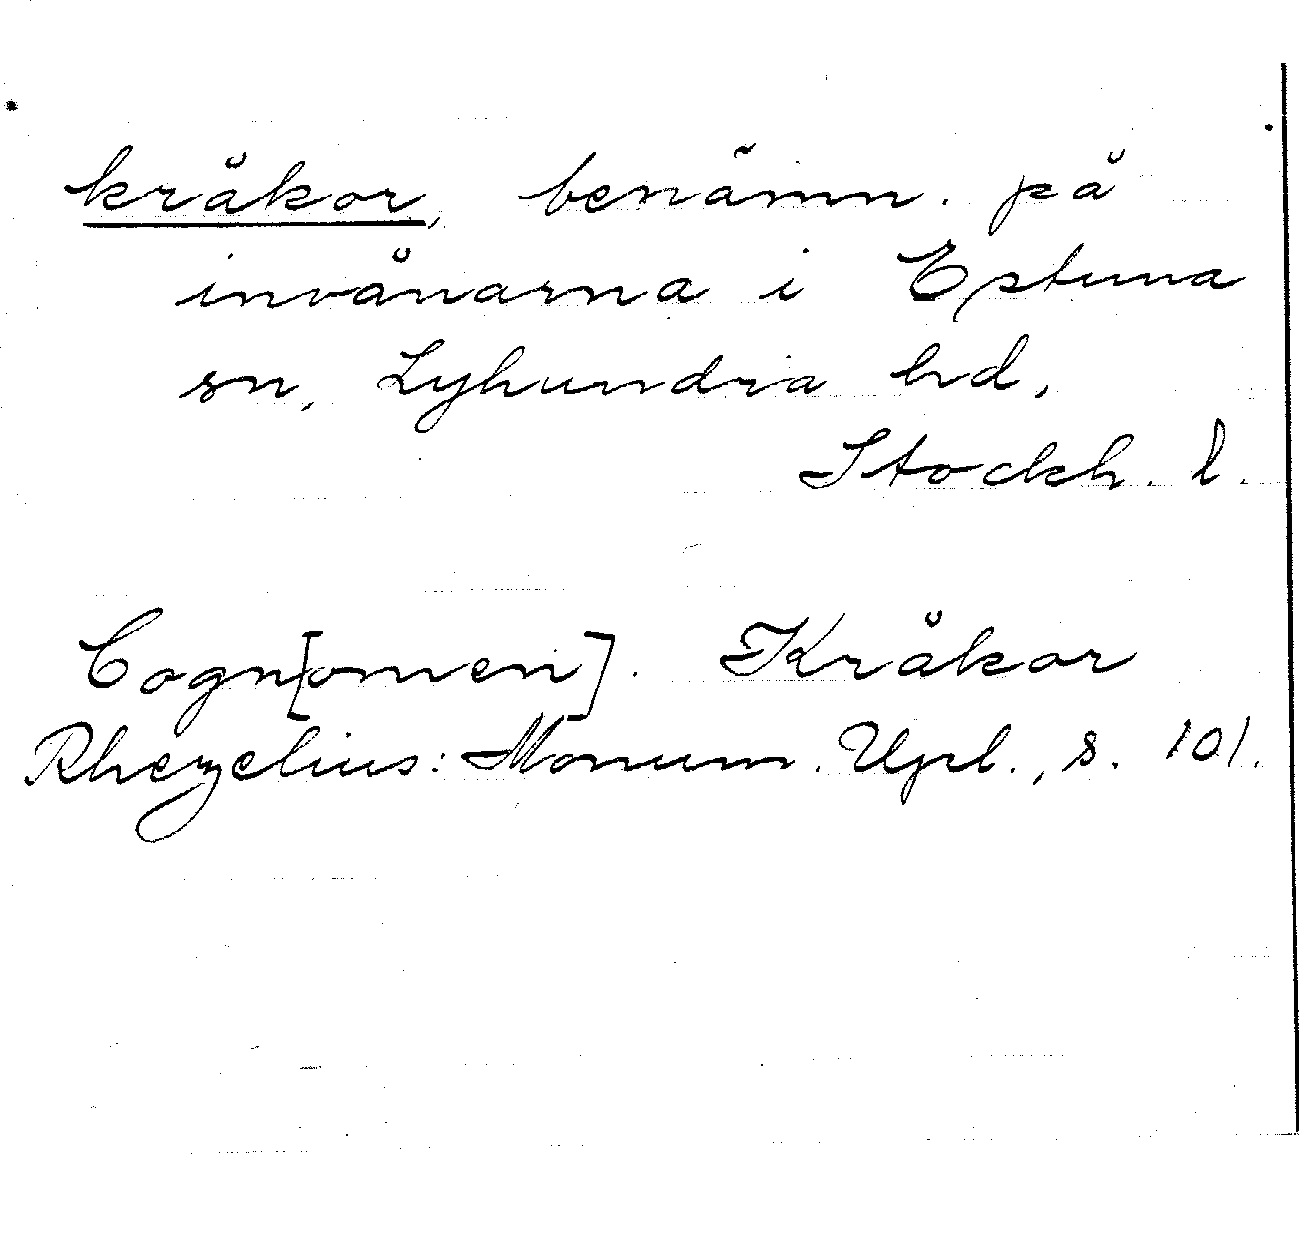 kråkor, benämn. på
invånarna i Estuna
sn, Lyhundra hd,
Stockh. l.
Cogn[omen]. Kråkor
Rhezelius: Monum. Upl., s. 101.